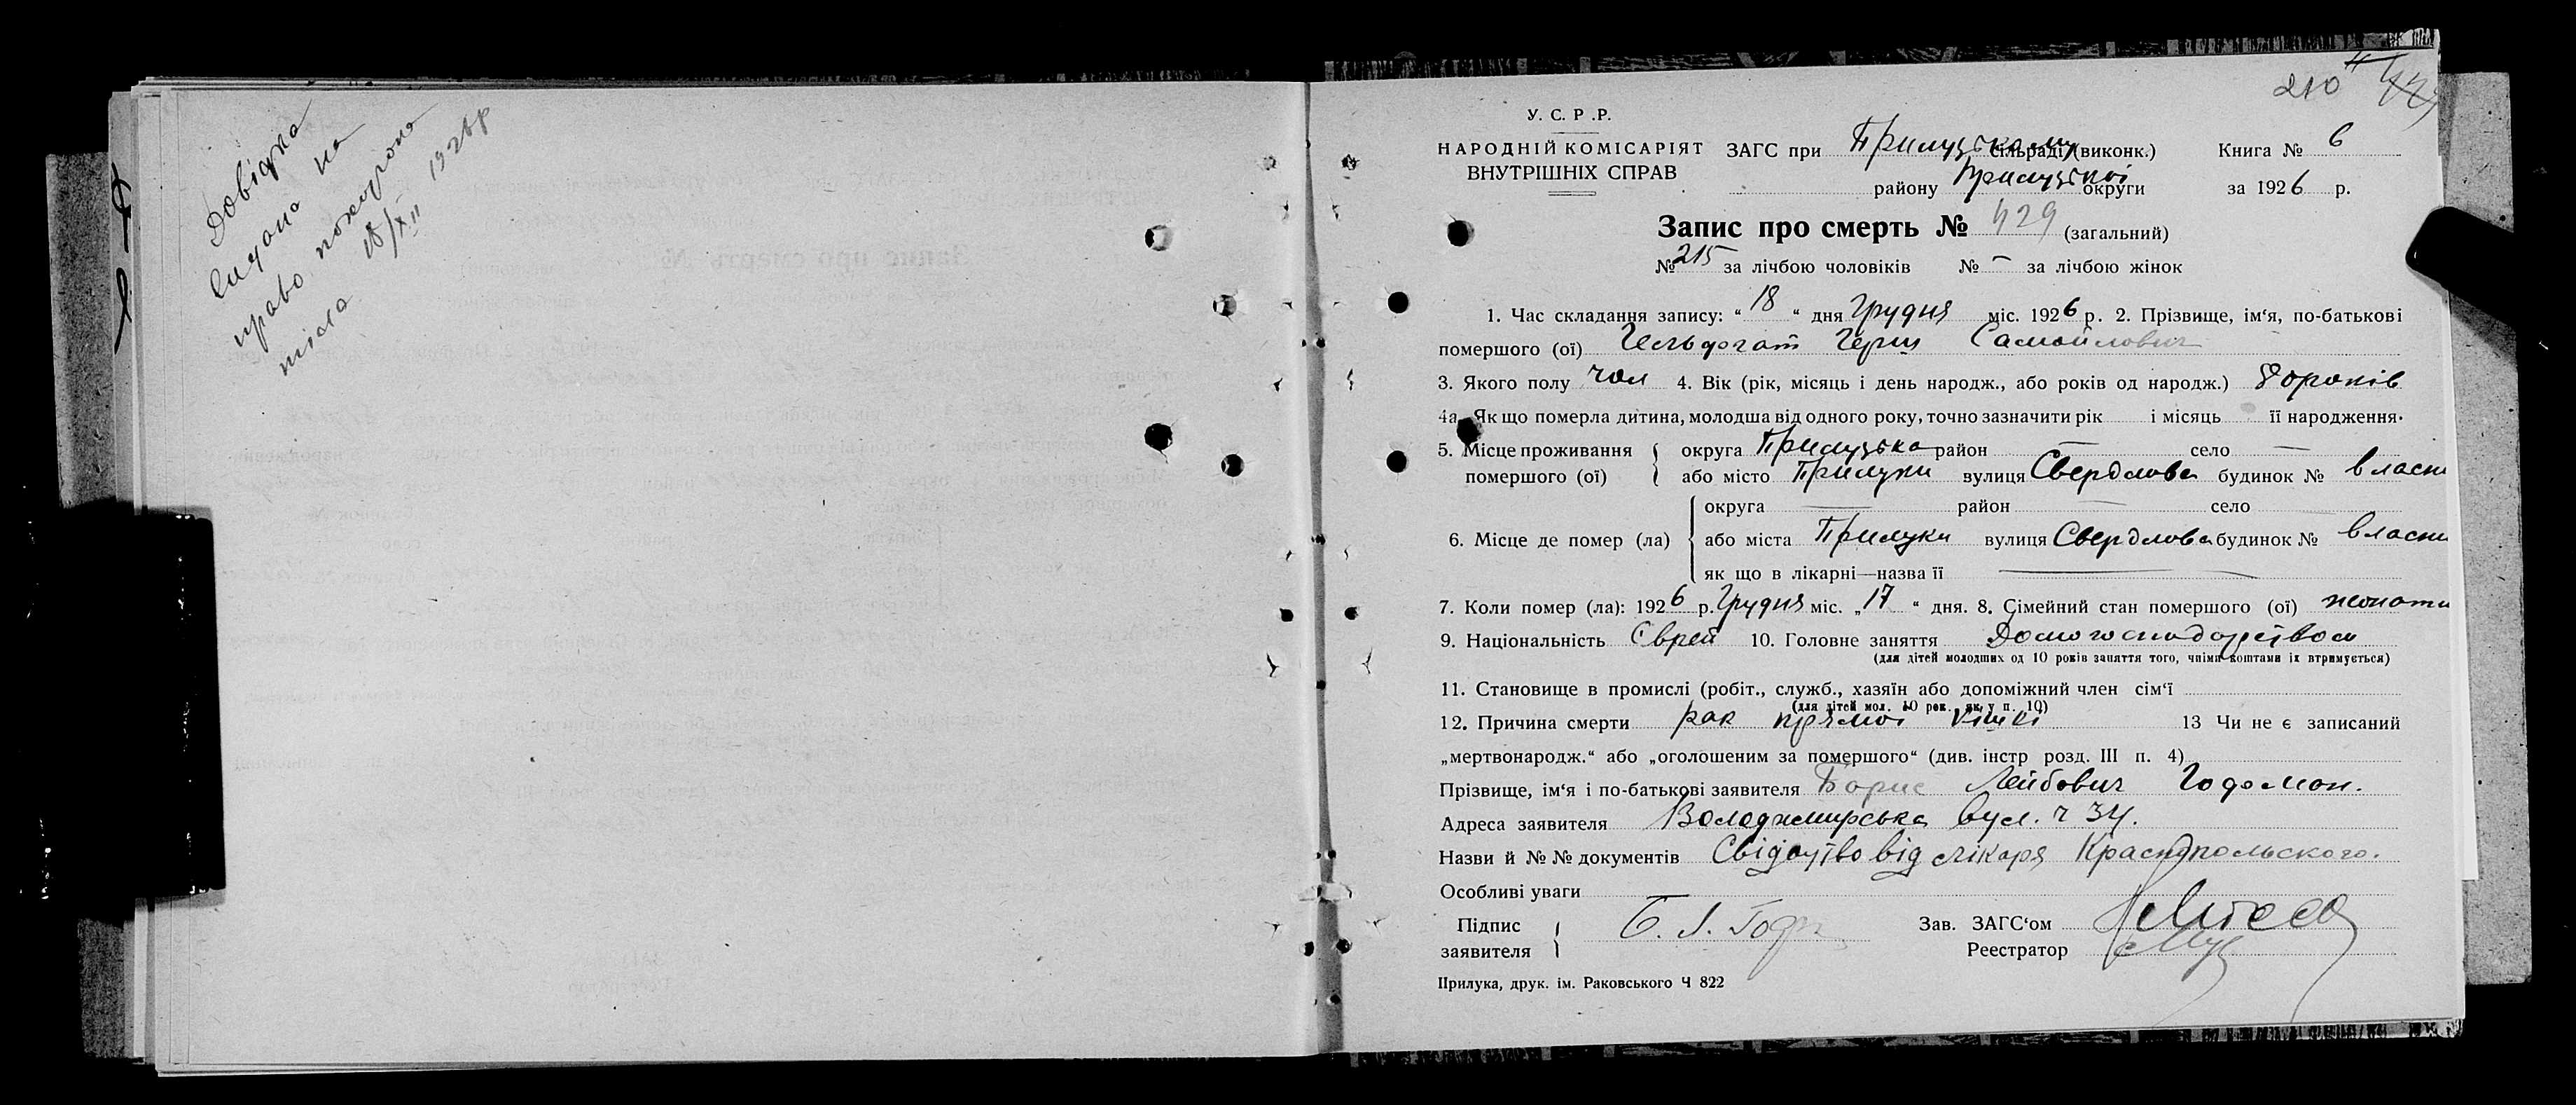 Довідка
видана на
право похорона
тіла 18/XII 1926 р
210
У. С. Р. Р.
НАРОДНІЙ КОМІСАРІЯТ
ВНУТРІШНІХ СПРАВ
ЗАГС при Прилуцькому сільраді (виконк.) Книга № 6
району Прилуцької округи за 1926 р.
Запис про смерть № 429 (загальний)
№ 215 за лічбою чоловіків № – за лічбою жінок
1. Час складання запису: “ 18 “ дня Грудня міс. 1926 р. 2. Прізвище, ім‘я, по-батькові
помершого (ої) Гельдогат Герш Самойлович
3. Якого полу чол 4. Вік (рік, місяць і день народж., або років од народж.) років
4а. Як що померла дитина, молодша від одного року, точно зазначити рік і місяць її народження.
5. Місце проживання помершого (ої) округа Прилуцька район — село —
або місто Прилуки вулиця Свердлова будинок № власн
6. Місце де помер (ла) округа — район — село
або міста Прилуки вулиця Свердлова будинок № власн
як що в лікарні—назва її —
7. Коли помер (ла): 1926 р. Грудня міс. „ 17 “ дня. 8. Сімейний стан помершого (ої) жонати
9. Національність Єврей 10. Головне заняття Домогосподарством
(для дітей молодших од 10 років заняття того, чиїми коштами їх втримується)
11. Становище в промислі (робіт., служб., хазяїн або допоміжний член сім‘ї
(для дітей мол. 10 рок. як у п. 10)
12. Причина смерти рак прямої кишкі 13 Чи не є записаний
„мертвонародж.“ або „оголошеним за помершого“ (див. інстр розд. III п. 4)
Прізвище, ім‘я і по-батькові заявителя Борис Лейбович Годоман.
Адреса заявителя Володимирська вул. ч 34.
Назви й №№ документів Свідоцтво від лікаря Краснопольского.
Особливі уваги
Підпис заявителя Б. Л. Год
Зав. ЗАГС‘ом
Реестратор
Прилука, друк. ім. Раковського Ч 822